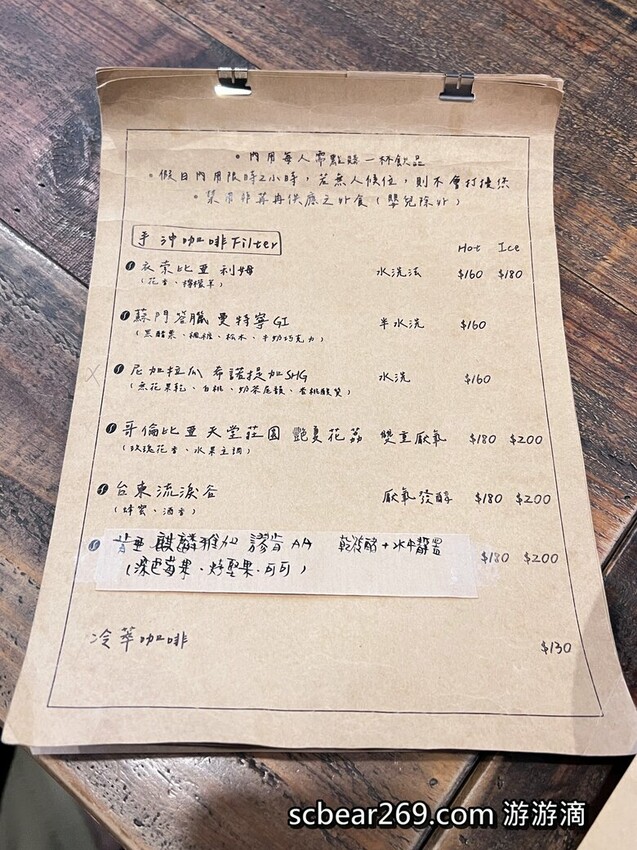 。內用每人需點購一杯飲品
。假日內用限時2小時，若無人候位，則不會打擾您
。禁用非菜冊供應之外食（嬰兒除外）
手沖咖啡Filter
Hot Ice
衣索比亞 利姆 水洗法 $160 $180
（花香、檸檬草）
蘇門答臘 曼特寧G1 半水洗 $160
（黑醋栗、楓糖、松木、牛奶巧克力）
尼加拉瓜 希諾提加SHG 水洗 $160
（無花果乾、白桃、奶茶尾韻、蜜桃酸質）
哥倫比亞天堂莊園 艷夏花荔 雙重厭氧 $180 $200
（玫瑰花香、水果主調）
台東流淚谷 厭氧發酵 $180 $200
（蜂蜜、酒香）
肯亞 麒麟雅加 AA 乾發酵+水中靜置 $180 $200
（深色莓果、烏聖果、可可）
冷萃咖啡 $130
scbear269.com 游游滴